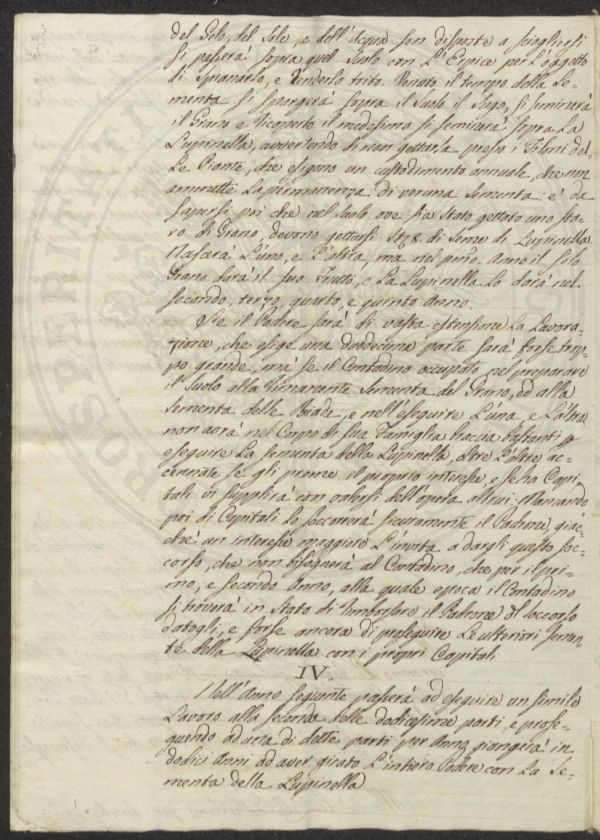 del Gelo, del Sole, e dell'Acqua son disposte a sciogliersi
si passerà sopra quel Suolo con L'Erpice per l'oggetto
di Spianarlo, e renderlo trito. Venuto il tempo della Se-
menta si spargerà sopra il Suolo il Sugo, si seminerà
il Grano e ricoperto il medesimo si seminerà sopra La
Lupinella, avvertendo di non gettarla presso i Filoni del-
le Piante, che esigono un custodimento annuale, che non
ammette La permanenza di veruna Sementa: è da
sapersi poi che nel Suolo ove sia stato gettato uno sta-
ro di Grano, devono gettarsi St. 8. di Seme di Lupinella.
Nascerà L'uno, e L'altra, ma nel primo Anno il solo
Grano darà il suo Frutto, e La Lupinella Lo darà nel
secondo, terzo, quarto, e quinto Anno.
Se il Podere sarà di vasta estensione La Lavora-
zione, che esige una dodecima parte sarà forse trop-
po grande, mà se il Contadino occupato nel preparare
il Suolo alla rimanente Sementa del Grano, ed alla
Sementa delle Biade, e nell'eseguire L'una, e L'altra
non avrà nel Corpo di sua Famiglia braccia bastanti p
eseguire La Sementa della Lupinella, oltre L'altre ac-
cennate se gli preme il proprio interesse, e se ha Capi-
tali vi supplirà con valersi dell'opera altrui. Mancando
poi di Capitali Lo soccorrerà sicuramente il Padrone, giac-
chè un interesse maggiore L'invita a dargli questo soc-
corso, che non bisognerà al Contadino, che per il pri-
mo, e secondo Anno, alla quale epoca il Contadino
si troverà in Stato di rimborsare il Padrone del soccorso
datogli, e forse ancora di proseguire Le ulteriori Semen-
te della Lupinella con i propri Capitali
IV.
Nell'Anno seguente passerà ad eseguire un simile
Lavoro alla seconda delle dodicesime parti, e prose-
guendo ad una di dette parti per Anno giungerà in
dodici Anni ad aver girato L'intiero Podere con La Se-
menta della Lupinella